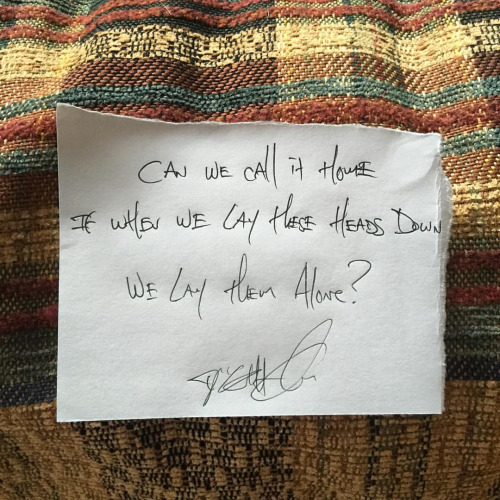 CAN WE CALL it HOME
IF WHEN WE LAY THESE HEADS DOWN
WE LAY them Alone?